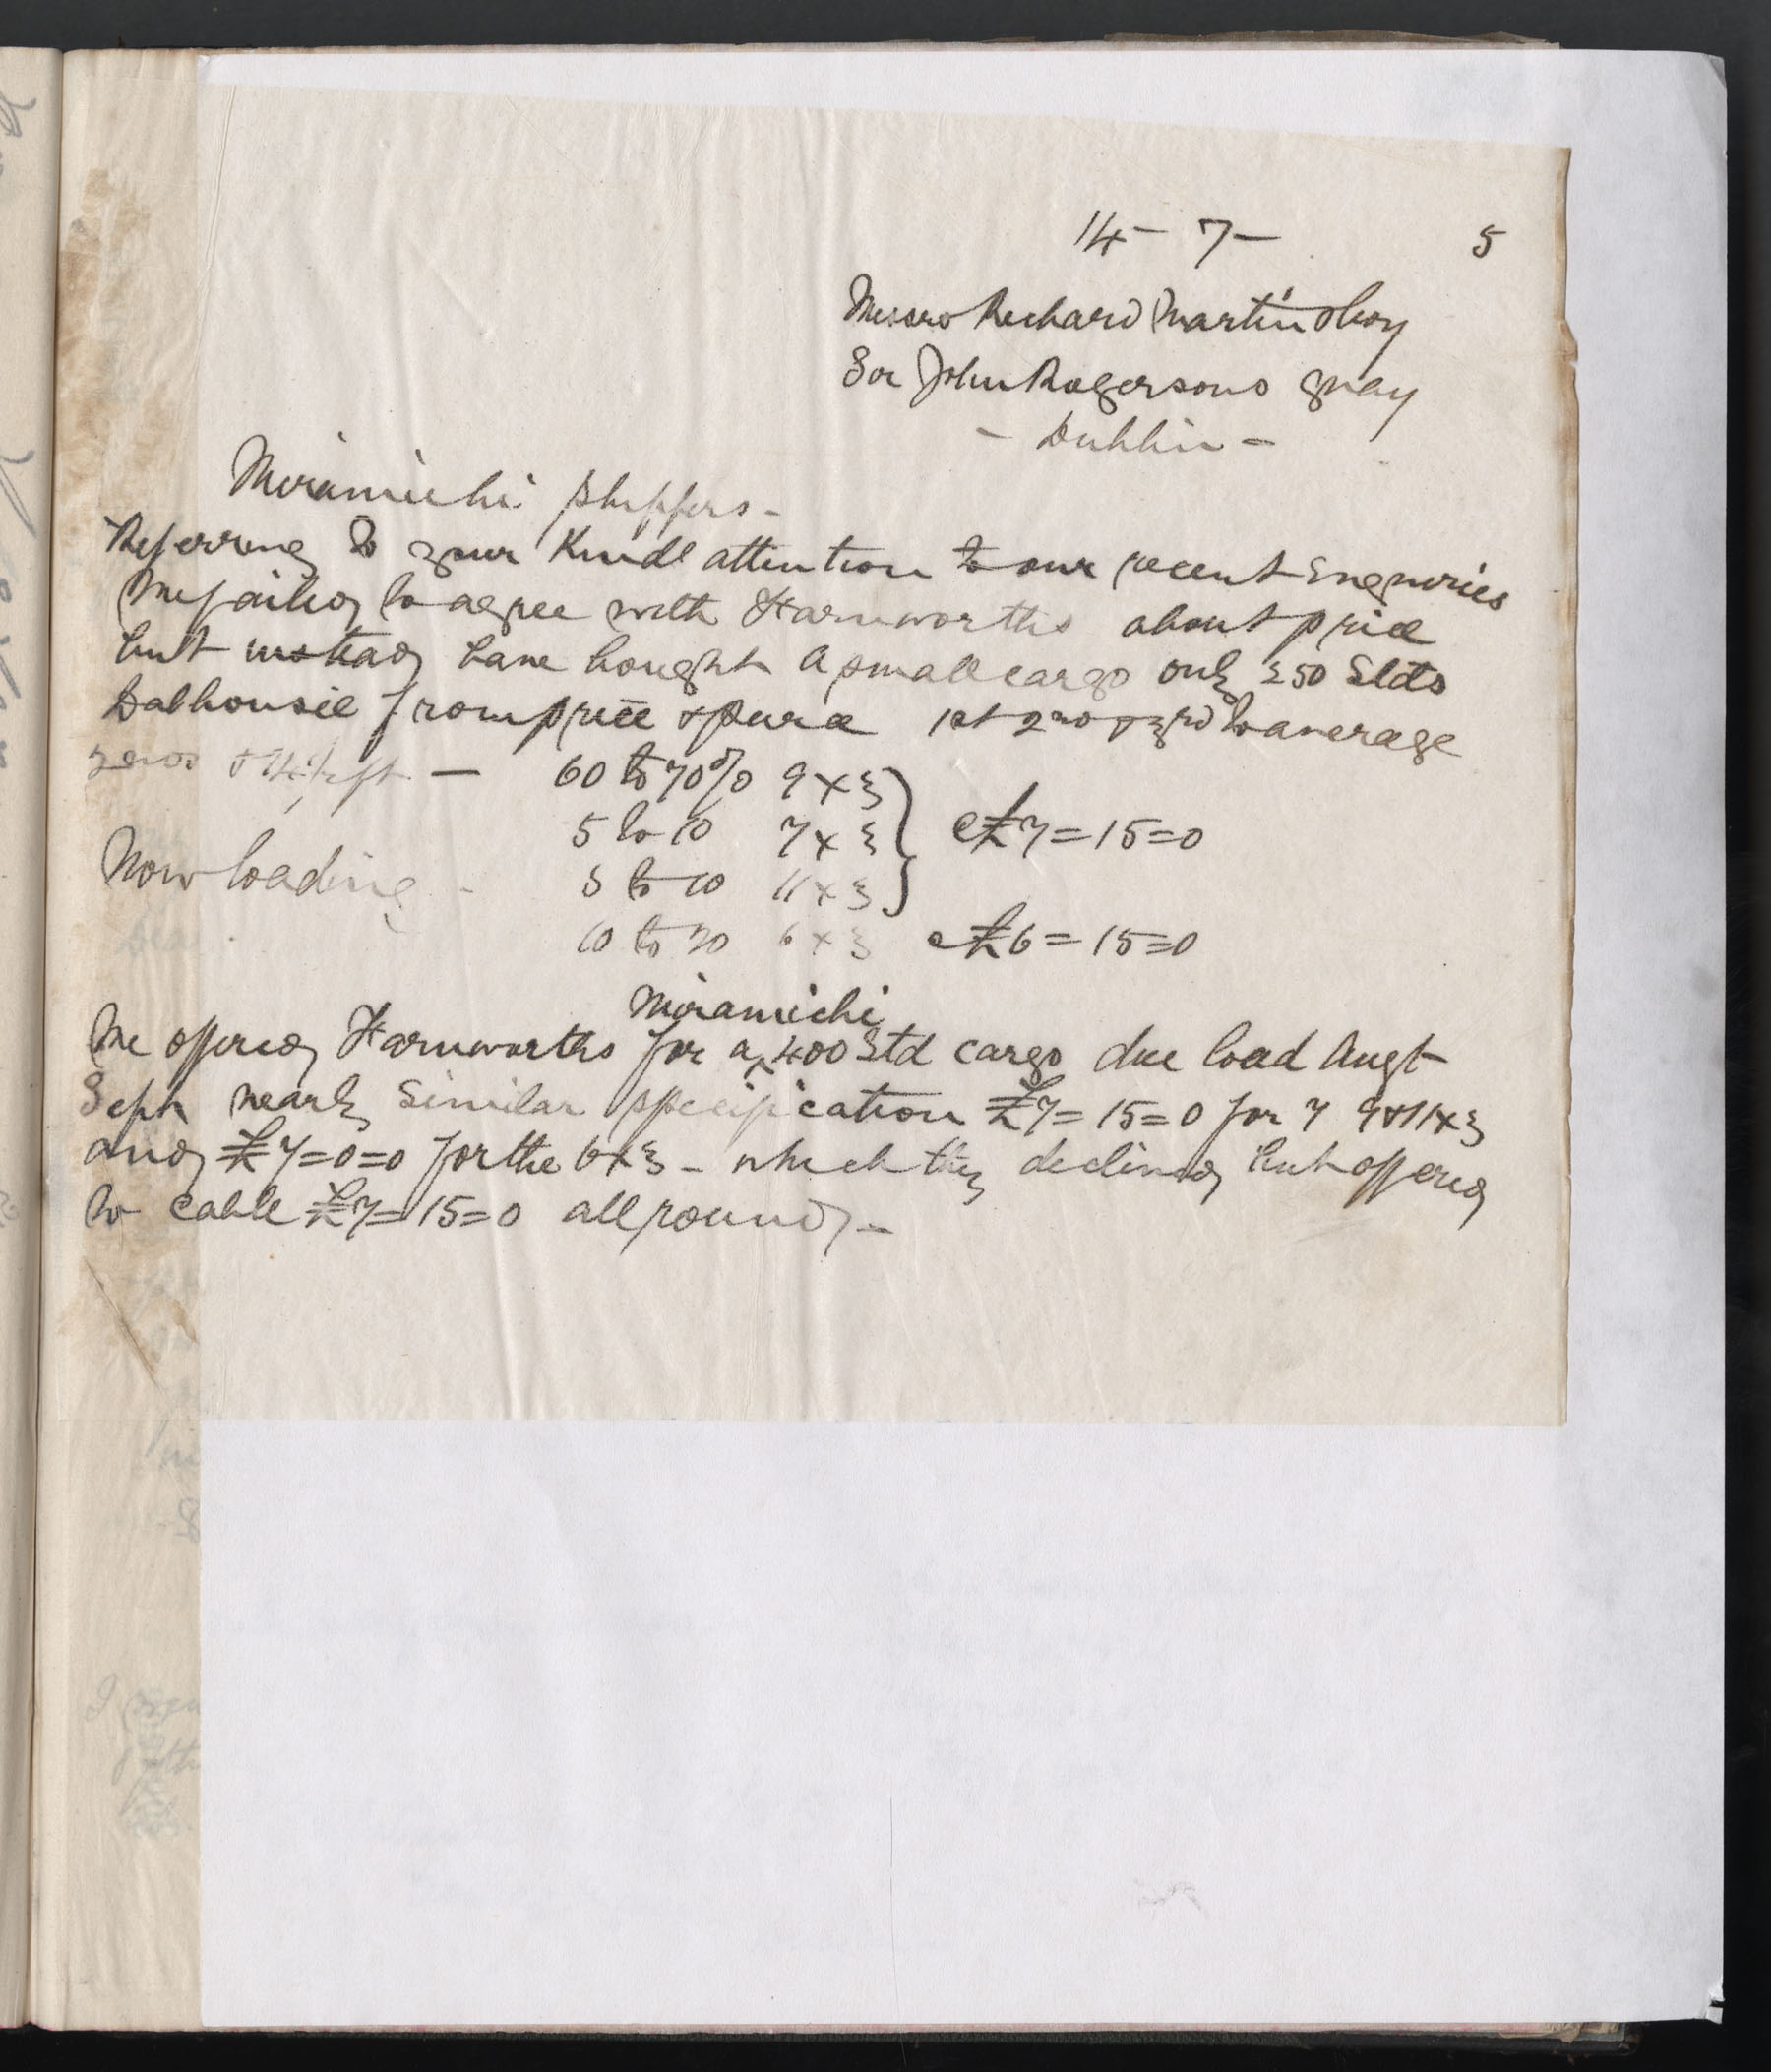 14 - 7 - 5
Messrs Richard Martin & Coy
Sir John Rogersons Quay
- Dublin -
Miramichi Shippers -
Referring to your Kind attention to our recent Enquiries
We failed to agree with Farnworths about price
but instead have bought a small cargo only 250 Stds
Dalhousie from price & Spruce 1st 2nd & 3rd to average
& 14 1/2 ft - 60 to 70% 9 x 3
5 to 10 7 x 3 @ £7=15=0
Now loading - 5 to 10 11 x 3
10 to 20 6 x 3 @ £6=15=0
Miramichi
We offered Farnworths for a 400 Std cargo due load Augt
Sept nearly Similar specification £7=15=0 for 7 9 & 11 x 3
and £7=0=0 for the 6 x 3 - which they declined but offered
to cable £7=15=0 all round -